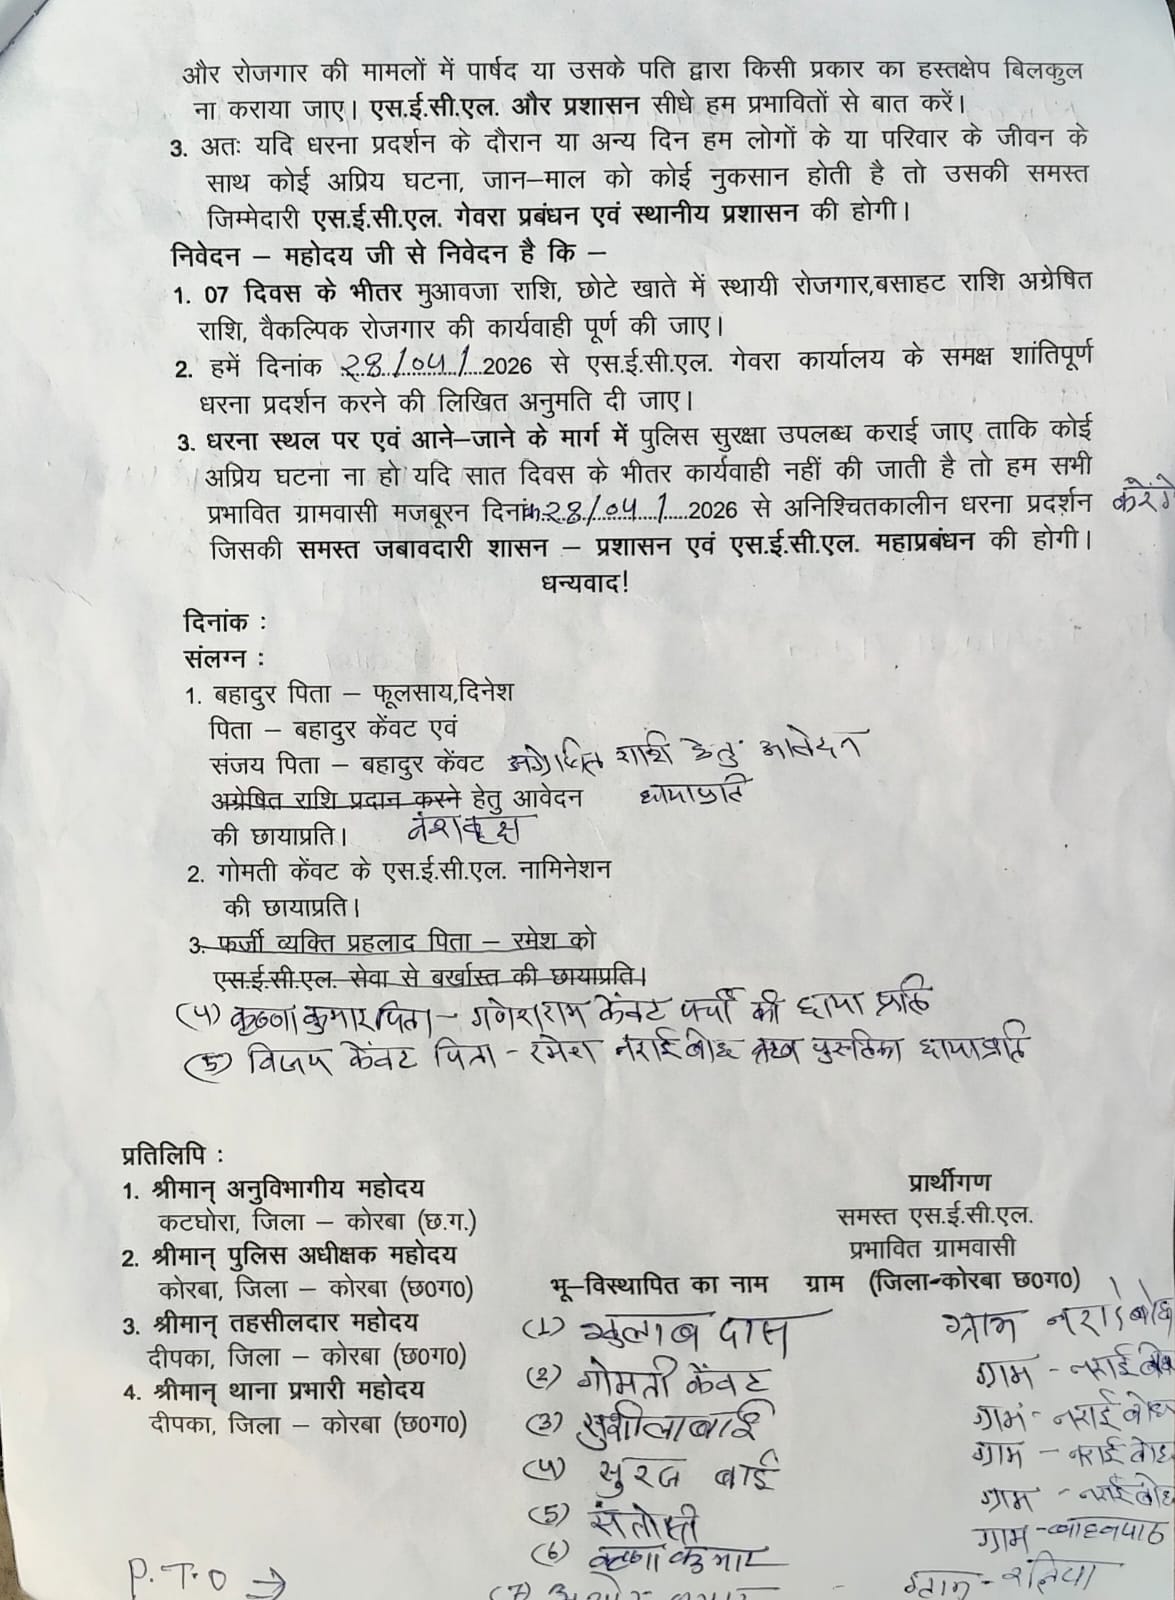 और रोजगार की मामलों में पार्षद या उसके पति द्वारा किसी प्रकार का हस्तक्षेप बिलकुल
ना कराया जाए। एस.ई.सी.एल. और प्रशासन सीधे हम प्रभावितों से बात करें।
3. अतः यदि धरना प्रदर्शन के दौरान या अन्य दिन हम लोगों के या परिवार के जीवन के
साथ कोई अप्रिय घटना, जान–माल को कोई नुकसान होती है तो उसकी समस्त
जिम्मेदारी एस.ई.सी.एल. गेवरा प्रबंधन एवं स्थानीय प्रशासन की होगी।
निवेदन – महोदय जी से निवेदन है कि –
1. 07 दिवस के भीतर मुआवजा राशि, छोटे खाते में स्थायी रोजगार,बसाहट राशि अग्रेषित
राशि, वैकल्पिक रोजगार की कार्यवाही पूर्ण की जाए।
2. हमें दिनांक 28/04/2026 से एस.ई.सी.एल. गेवरा कार्यालय के समक्ष शांतिपूर्ण
धरना प्रदर्शन करने की लिखित अनुमति दी जाए।
3. धरना स्थल पर एवं आने–जाने के मार्ग में पुलिस सुरक्षा उपलब्ध कराई जाए ताकि कोई
अप्रिय घटना ना हो यदि सात दिवस के भीतर कार्यवाही नहीं की जाती है तो हम सभी
प्रभावित ग्रामवासी मजबूरन दिनांक 28/04/2026 से अनिश्चितकालीन धरना प्रदर्शन करेंगे
जिसकी समस्त जबावदारी शासन – प्रशासन एवं एस.ई.सी.एल. महाप्रबंधन की होगी।
धन्यवाद!
दिनांक :
संलग्न :
1. बहादुर पिता – फूलसाय,दिनेश
पिता – बहादुर केंवट एवं
संजय पिता – बहादुर केंवट अग्रेषित राशि हेतु आवेदन
अग्रेषित राशि प्रदान करने हेतु आवेदन छायाप्रति
की छायाप्रति। वंशवृक्ष
2. गोमती केंवट के एस.ई.सी.एल. नामिनेशन
की छायाप्रति।
3. फर्जी व्यक्ति प्रहलाद पिता – रमेश को
एस.ई.सी.एल. सेवा से बर्खास्त की छायाप्रति।
(4) कृष्णा कुमार पिता – गणेशराम केंवट पर्ची की छाया प्रति
(5) विजय केंवट पिता – रमेश नराईबोध ऋण पुस्तिका छायाप्रति
प्रतिलिपि :
1. श्रीमान् अनुविभागीय महोदय
कटघोरा, जिला – कोरबा (छ.ग.)
2. श्रीमान् पुलिस अधीक्षक महोदय
कोरबा, जिला – कोरबा (छ0ग0)
3. श्रीमान् तहसीलदार महोदय
दीपका, जिला – कोरबा (छ0ग0)
4. श्रीमान् थाना प्रभारी महोदय
दीपका, जिला – कोरबा (छ0ग0)
प्रार्थीगण
समस्त एस.ई.सी.एल.
प्रभावित ग्रामवासी
भू–विस्थापित का नाम ग्राम (जिला-कोरबा छ0ग0)
(1) गुलाब दास ग्राम नराईबोध
(2) गोमती केंवट ग्राम - नराईबोध
(3) सुशीला बाई ग्राम - नराईबोध
(4) सुरज बाई ग्राम - नराईबोध
(5) संतोषी ग्राम - नराईबोध
(6) कृष्णा कुमार ग्राम -
(7) ग्राम - रलिया
P.T.O →